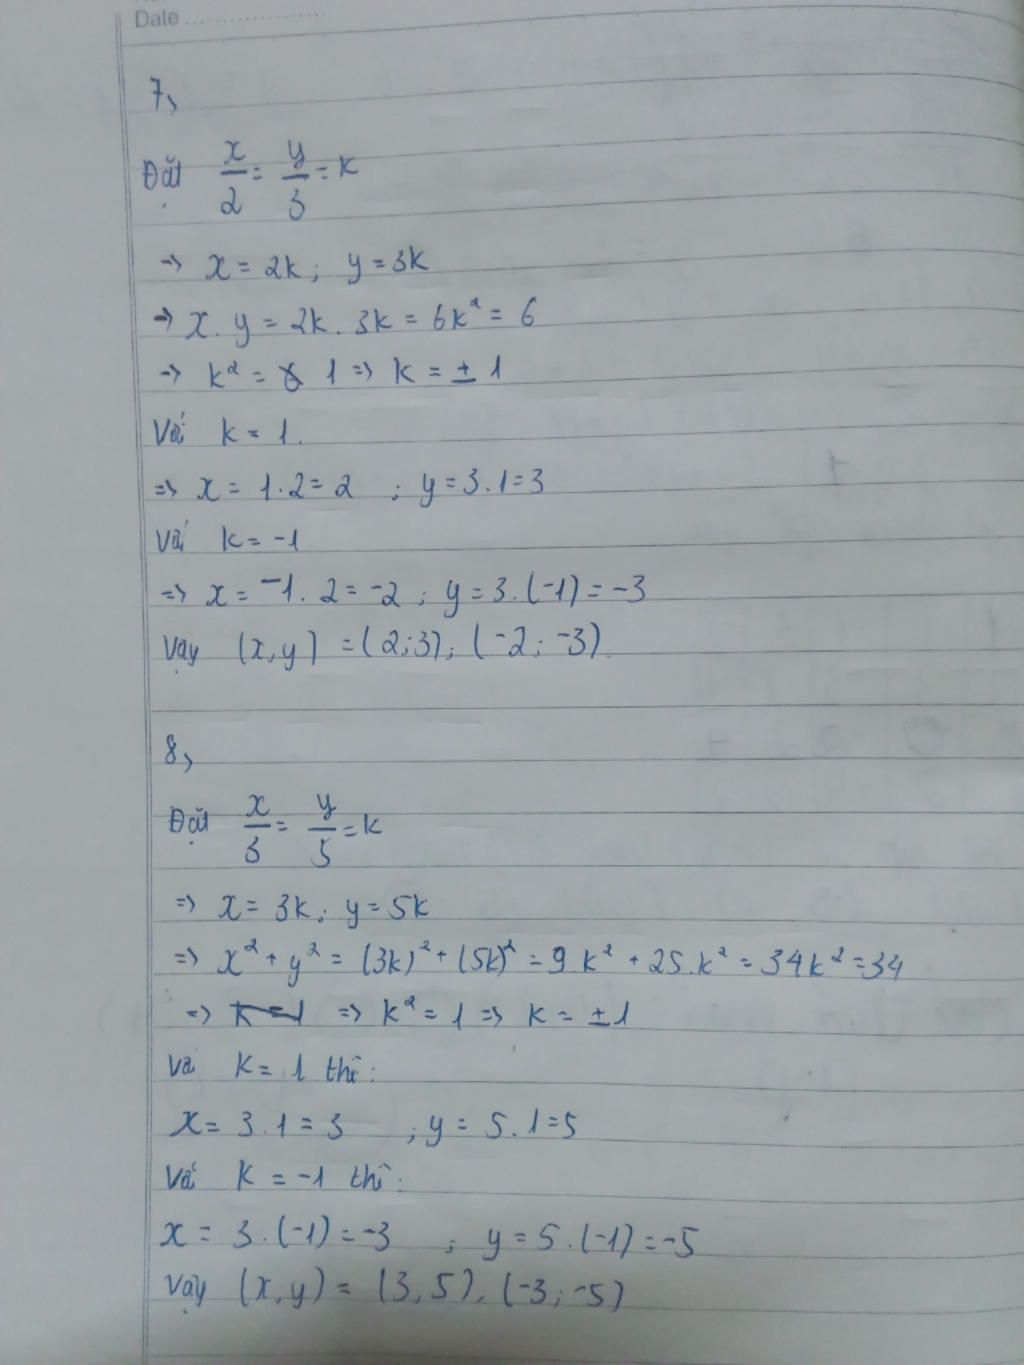 Date ....................
7,
Đặt x/2 = y/3 = k
=> x = 2k ; y = 3k
=> x . y = 2k . 3k = 6k² = 6
=> k² = 1 => k = ± 1
Với k = 1.
=> x = 1.2 = 2 ; y = 3.1 = 3
Với k = -1
=> x = -1.2 = -2 ; y = 3.(-1) = -3
Vậy (x,y) = (2;3); (-2; -3)
8,
Đặt x/3 = y/5 = k
=> x = 3k ; y = 5k
=> x² + y² = (3k)² + (5k)² = 9k² + 25.k² = 34k² = 34
=> k = 1 => k² = 1 => k = ±1
Với k = 1 thì :
x = 3.1 = 3 ; y = 5.1 = 5
Với k = -1 thì :
x = 3.(-1) = -3 ; y = 5.(-1) = -5
Vậy (x,y) = (3,5), (-3; -5)